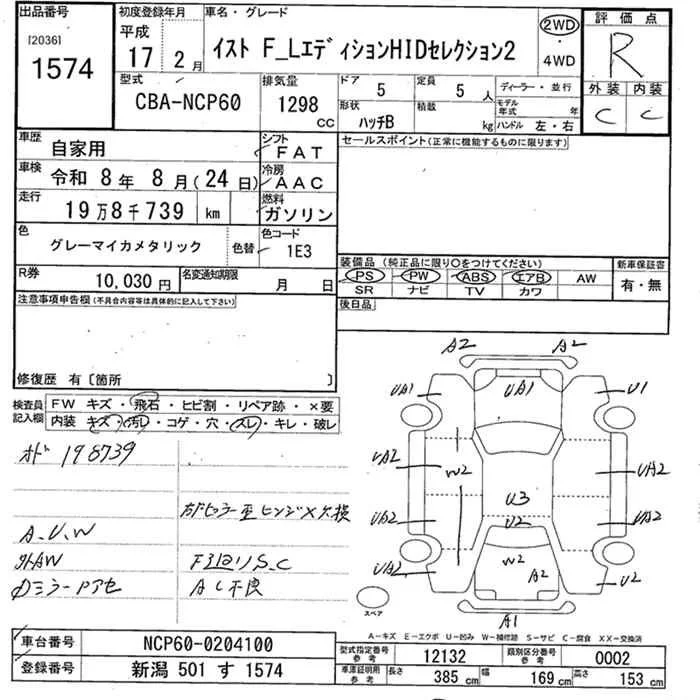 出品番号
[2036]
1574
初度登録年月
平成
17 2月
車名・グレード
イスト F_LエディションHIDセレクション2
2WD
・
4WD
評価点
R
外装 内装
C C
型式
CBA-NCP60
排気量
1298
CC
ドア 5
定員 5人
形状 ハッチB
積載 kg
ディーラー・並行
モデル年式 年
ハンドル 左・右
車歴 自家用
シフト FAT
セールスポイント(正常に機能するものに限ります)
車検 令和 8年 8月(24日)
冷房 AAC
走行 19万8千739 km
燃料 ガソリン
色 グレーマイカメタリック
色替
色コード 1E3
装備品(純正品に限り○をつけてください)
新車保証書
PS PW ABS エアB AW
有・無
SR ナビ TV カワ
R券 10,030円
名変通知期限 月 日
後日品
注意事項申告欄(不具合内容等は具体的に記入して下さい)
修復歴 有〔箇所 〕
検査員記入欄
FW キズ・飛石・ヒビ割・リペア跡・×要
内装 キズ・汚レ・コゲ・穴・スレ・キレ・破レ
オド 198739
A.U.W
外AW
A2 A2
UA1 UA1 U1
UA2 W2 UA2
U3
UA2 U2 UA2
W2 A2
UA2 U2
A1
スペア
A-キズ E-エクボ U-凹み W-補修跡 S-サビ C-腐食 XX-交換済
車台番号 NCP60-0204100
登録番号 新潟 501 す 1574
型式指定番号参考 12132
類別区分番号参考 0002
車庫証明用参考 長さ 385 cm 幅 169 cm 高さ 153 cm